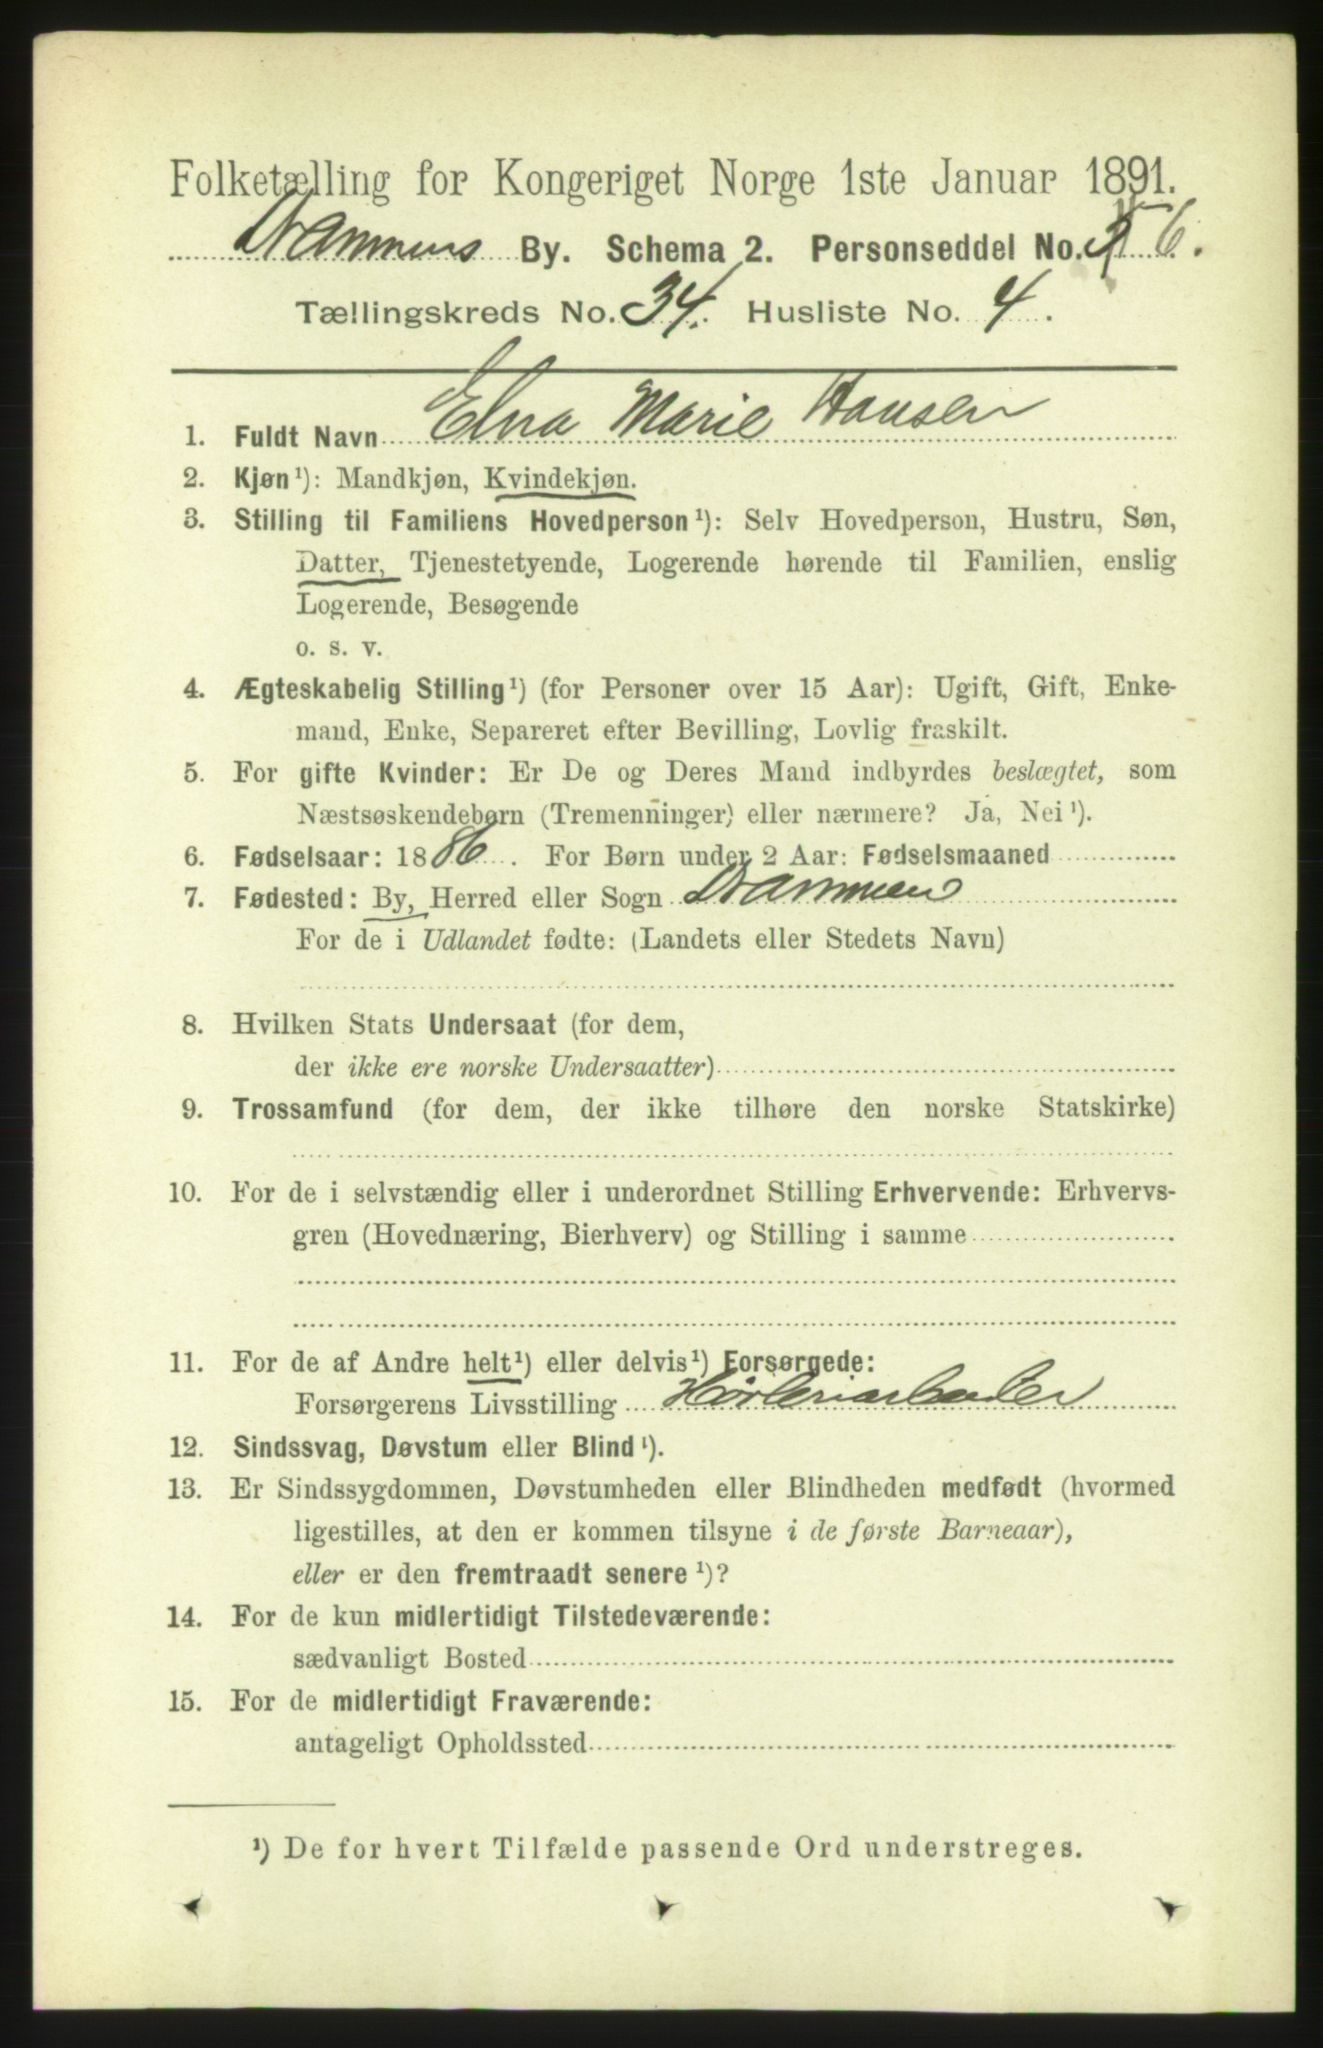 Folketælling for Kongeriget Norge 1ste Januar 1891.
Drammens By. Schema 2. Personseddel No. 6.
Tællingskreds No. 34. Husliste No. 4.
1. Fuldt Navn Elna Marie Hansen
2. Kjøn¹): Mandkjøn, Kvindekjøn.
3. Stilling til Familiens Hovedperson¹): Selv Hovedperson, Hustru, Søn,
Datter, Tjenestetyende, Logerende hørende til Familien, enslig
Logerende, Besøgende
o. s. v.
4. Ægteskabelig Stilling¹) (for Personer over 15 Aar): Ugift, Gift, Enke-
mand, Enke, Separeret efter Bevilling, Lovlig fraskilt.
5. For gifte Kvinder: Er De og Deres Mand indbyrdes beslægtet, som
Næstsøskendebørn (Tremenninger) eller nærmere? Ja, Nei¹).
6. Fødselsaar: 1886. For Børn under 2 Aar: Fødselsmaaned
7. Fødested: By, Herred eller Sogn Drammen
For de i Udlandet fødte: (Landets eller Stedets Navn)
8. Hvilken Stats Undersaat (for dem,
der ikke ere norske Undersaatter)
9. Trossamfund (for dem, der ikke tilhøre den norske Statskirke)
10. For de i selvstændig eller i underordnet Stilling Erhvervende: Erhvervs-
gren (Hovednæring, Bierhverv) og Stilling i samme
11. For de af Andre helt¹) eller delvis¹) Forsørgede:
Forsørgerens Livsstilling Høvleriarbeider
12. Sindssvag, Døvstum eller Blind¹).
13. Er Sindssygdommen, Døvstumheden eller Blindheden medfødt (hvormed
ligestilles, at den er kommen tilsyne i de første Barneaar),
eller er den fremtraadt senere¹)?
14. For de kun midlertidigt Tilstedeværende:
sædvanligt Bosted
15. For de midlertidigt Fraværende:
antageligt Opholdssted
¹) De for hvert Tilfælde passende Ord understreges.